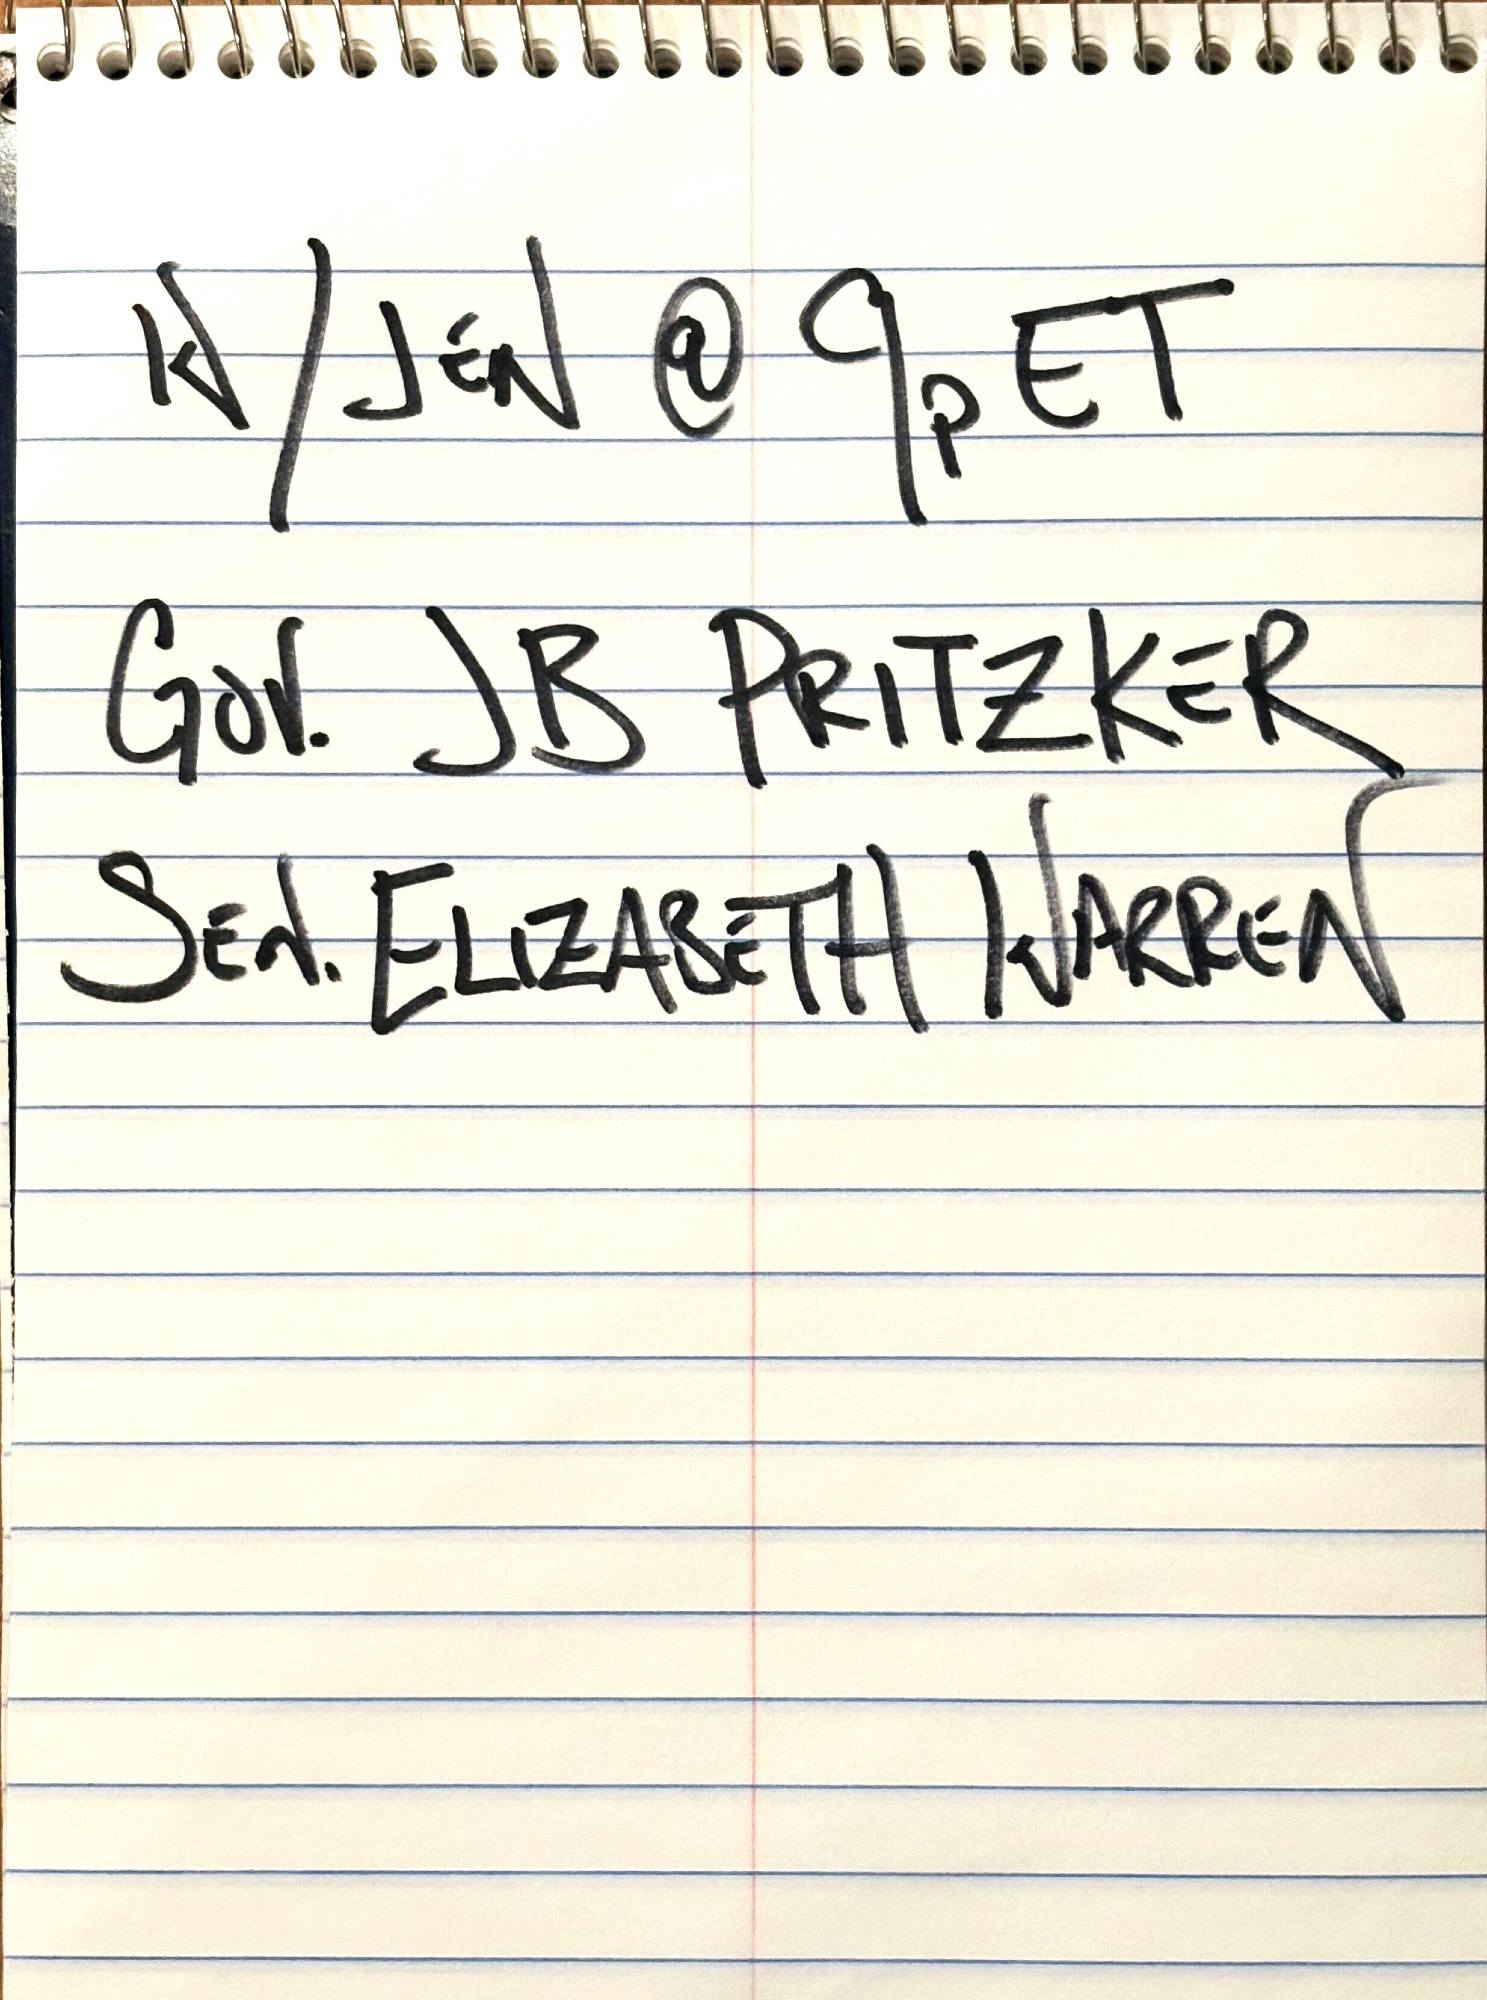 W/JEN @ 9p ET
GOV. JB PRITZKER
SEN. ELIZABETH WARREN